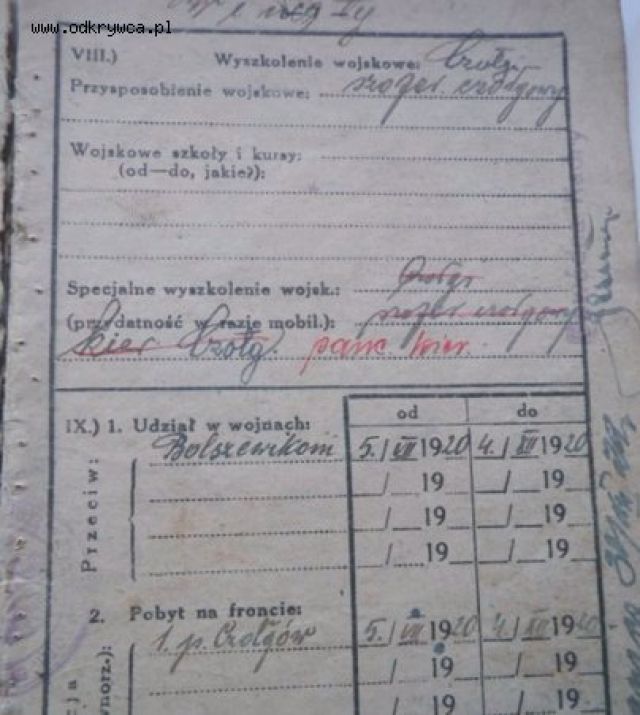 www.odkrywca.pl
VIII.) Wyszkolenie wojskowe: Czołgi
Przysposobienie wojskowe: szofer czołgowy
Wojskowe szkoły i kursy:
(od—do, jakie?):
Specjalne wyszkolenie wojsk.: Czołgi
(przydatność w razie mobil.): szofer czołgowy
kier czołg. panc. kier.
od do
IX.) 1. Udział w wojnach:
Bolszewikom 5./VII 1920 4./XII 1920
/ 19 / 19
/ 19 / 19
/ 19 / 19
Przeciw:
2. Pobyt na froncie:
1. p. Czołgów 5./VII 1920 4./XII 1920
/ 19 / 19
/ 19 / 19